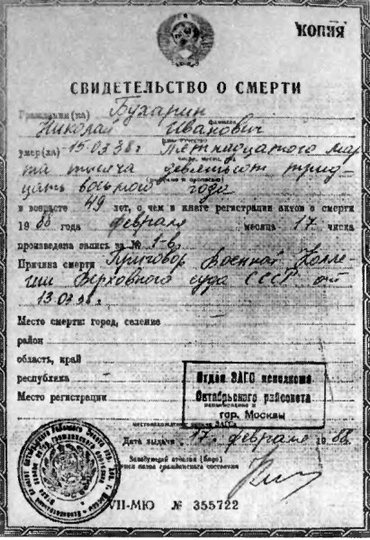 КОПИЯ
СВИДЕТЕЛЬСТВО О СМЕРТИ
Гражданин(ка) Бухарин
фамилия
Николай Иванович
умер(ла) 15.03.38г Пятнадцатого мар
число, месяц, год
та тысяча девятьсот трид
цать восьмого года
в возрасте 49 лет, о чем в книге регистрации актов о смерти
1988 года февраля месяца 17 числа
произведена запись за №
Причина смерти Приговор Военной Колле
гии Верховного суда СССР от
13.03.38г
Место смерти: город, селение
район
область, край
республика
Место регистрации
Отдел ЗАГС исполкома
Октябрьского райсовета
гор. Москвы
местонахождение органа ЗАГСа
Дата выдачи 17 февраля 1988г.
Заведующий отделом (бюро)
записи актов гражданского состояния
VII-МЮ № 355722